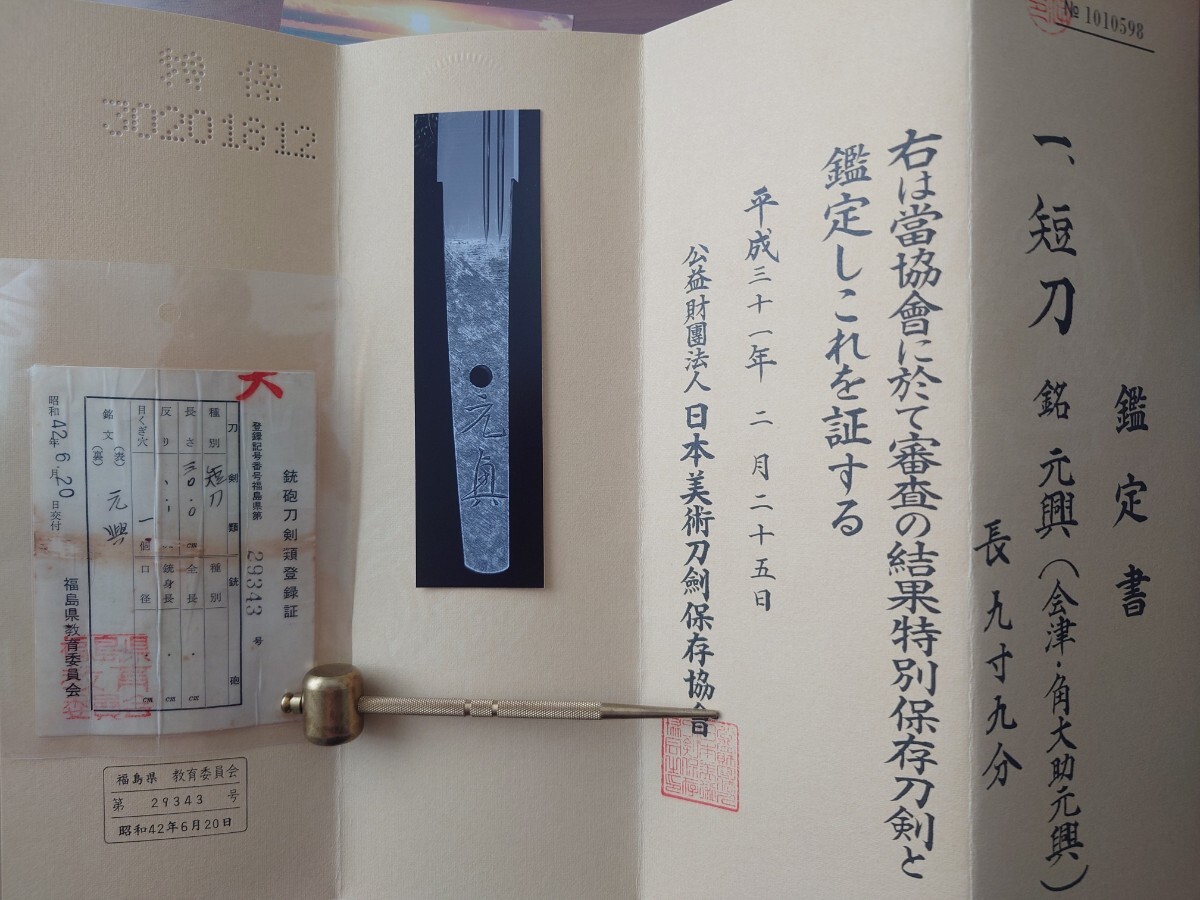 № 1010598
鑑定書
一、短刀 銘 元興(会津・角大助元興)
長 九寸九分
右は當協會に於て審査の結果特別保存刀剣と
鑑定しこれを証する
平成三十一年 二月二十五日
公益財團法人 日本美術刀劍保存協會
元興
特保
30201812
大
銃砲刀剣類登録証
登録記号番号福島県第 29343 号
刀剣類 銃砲
種別 短刀 種別
長さ 三〇.〇 cm 全長 . cm
反り 銃身長 . cm
目くぎ穴 一個 口径 . cm
銘文 (表) 元興
(裏)
昭和42年6月20日交付
福島県教育委員会
福島県教育委員会
福島県 教育委員会
第 29343 号
昭和42年6月20日